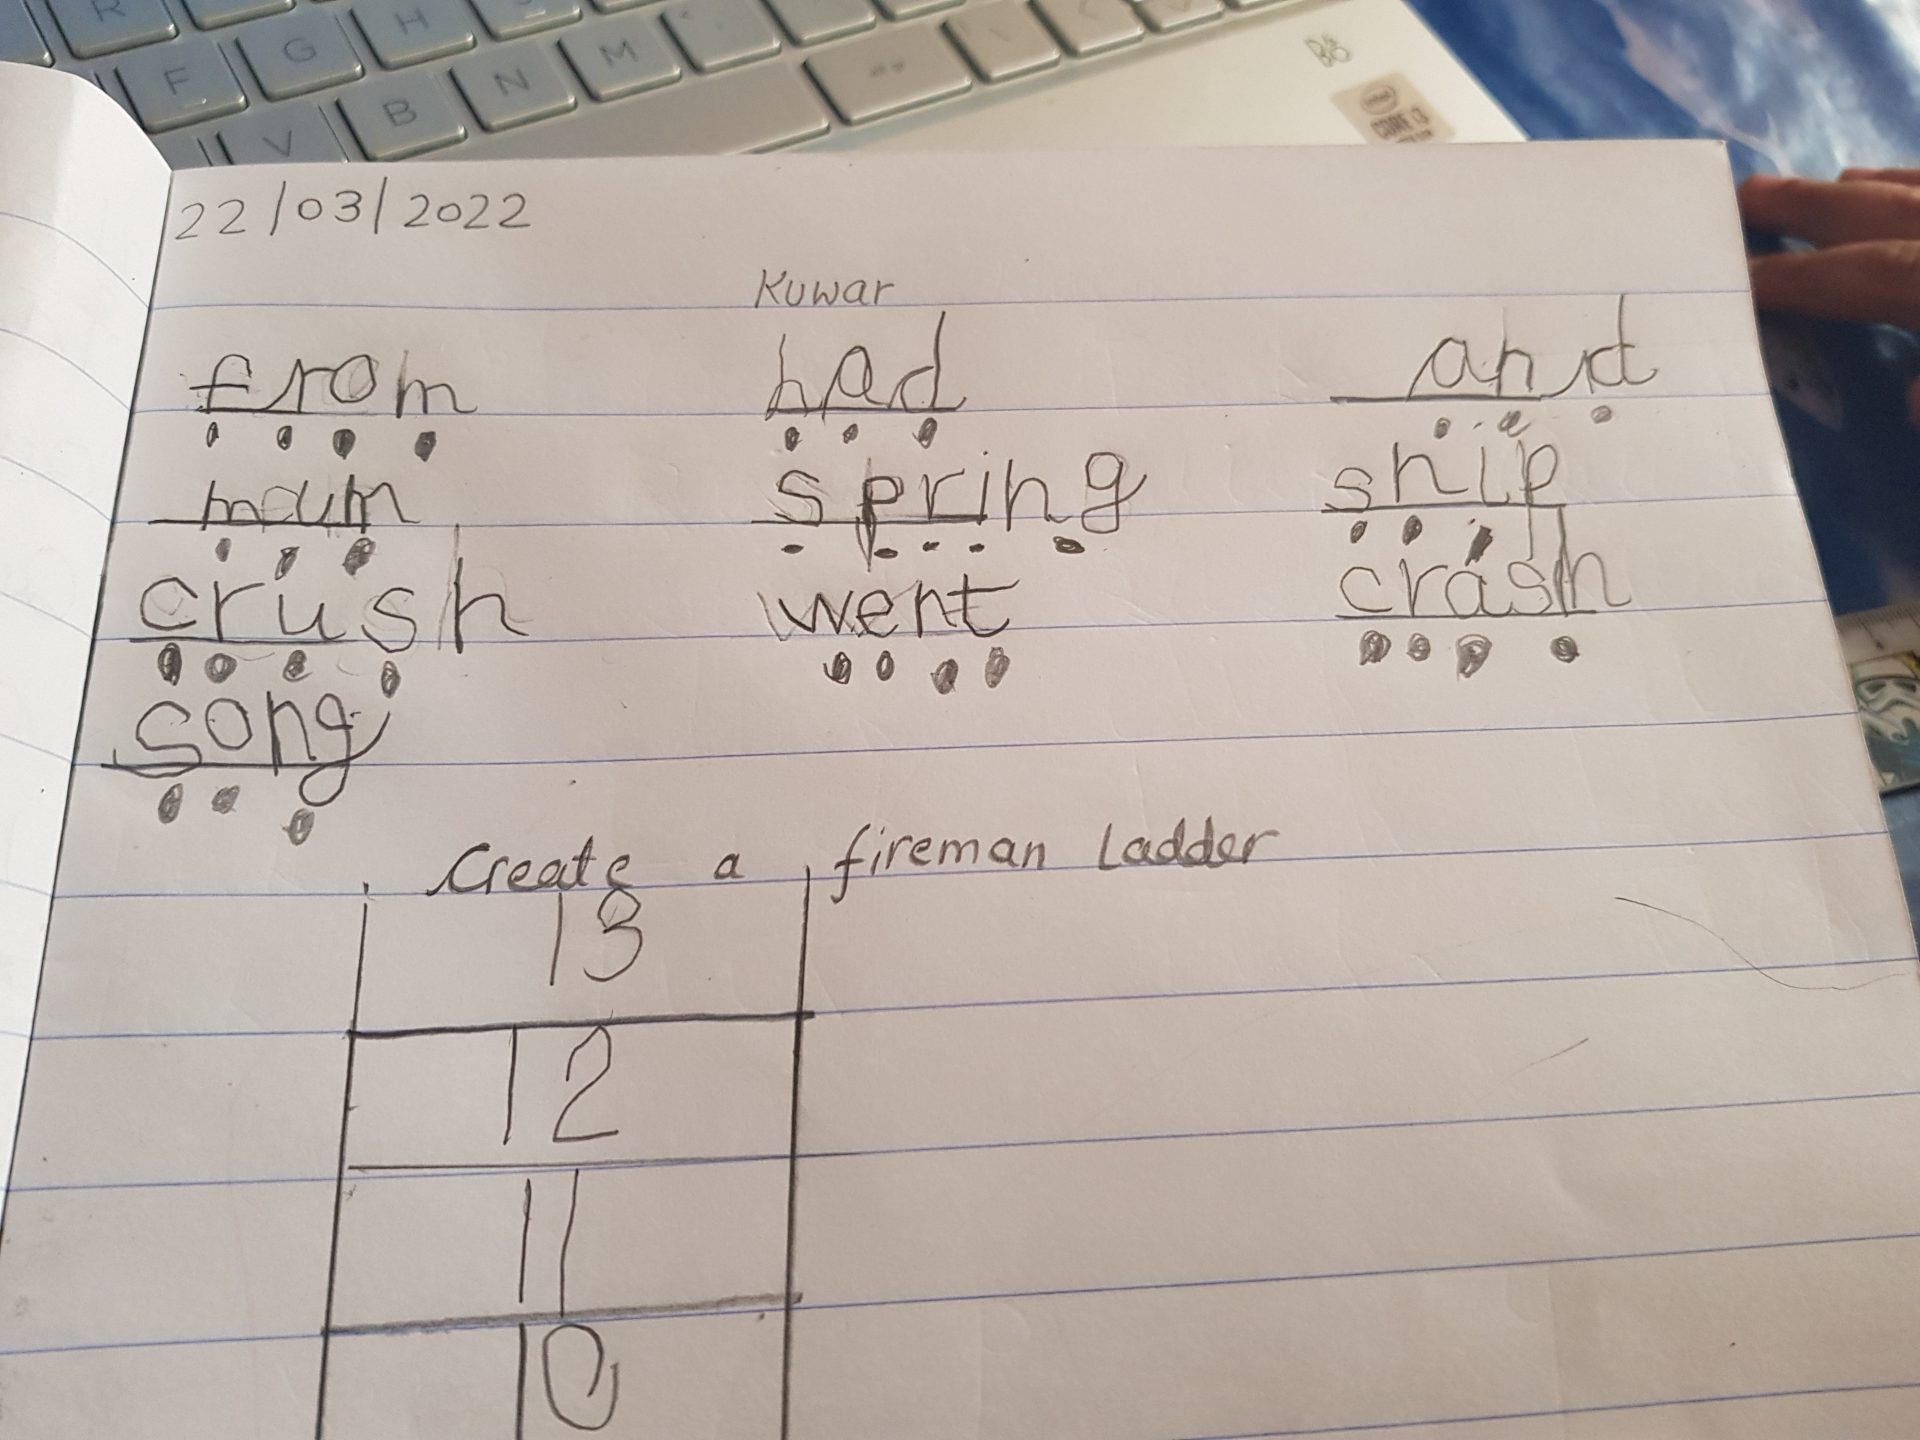 R
F G H
V B N M
intel
CORE i3
22/03/2022
Kuwar
from had and
mum spring ship
crush went crash
song
Create a fireman ladder
13
12
11
10